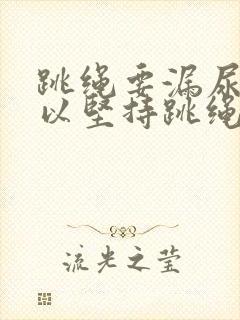 跳绳要漏尿
以坚持跳绳
流光之莹